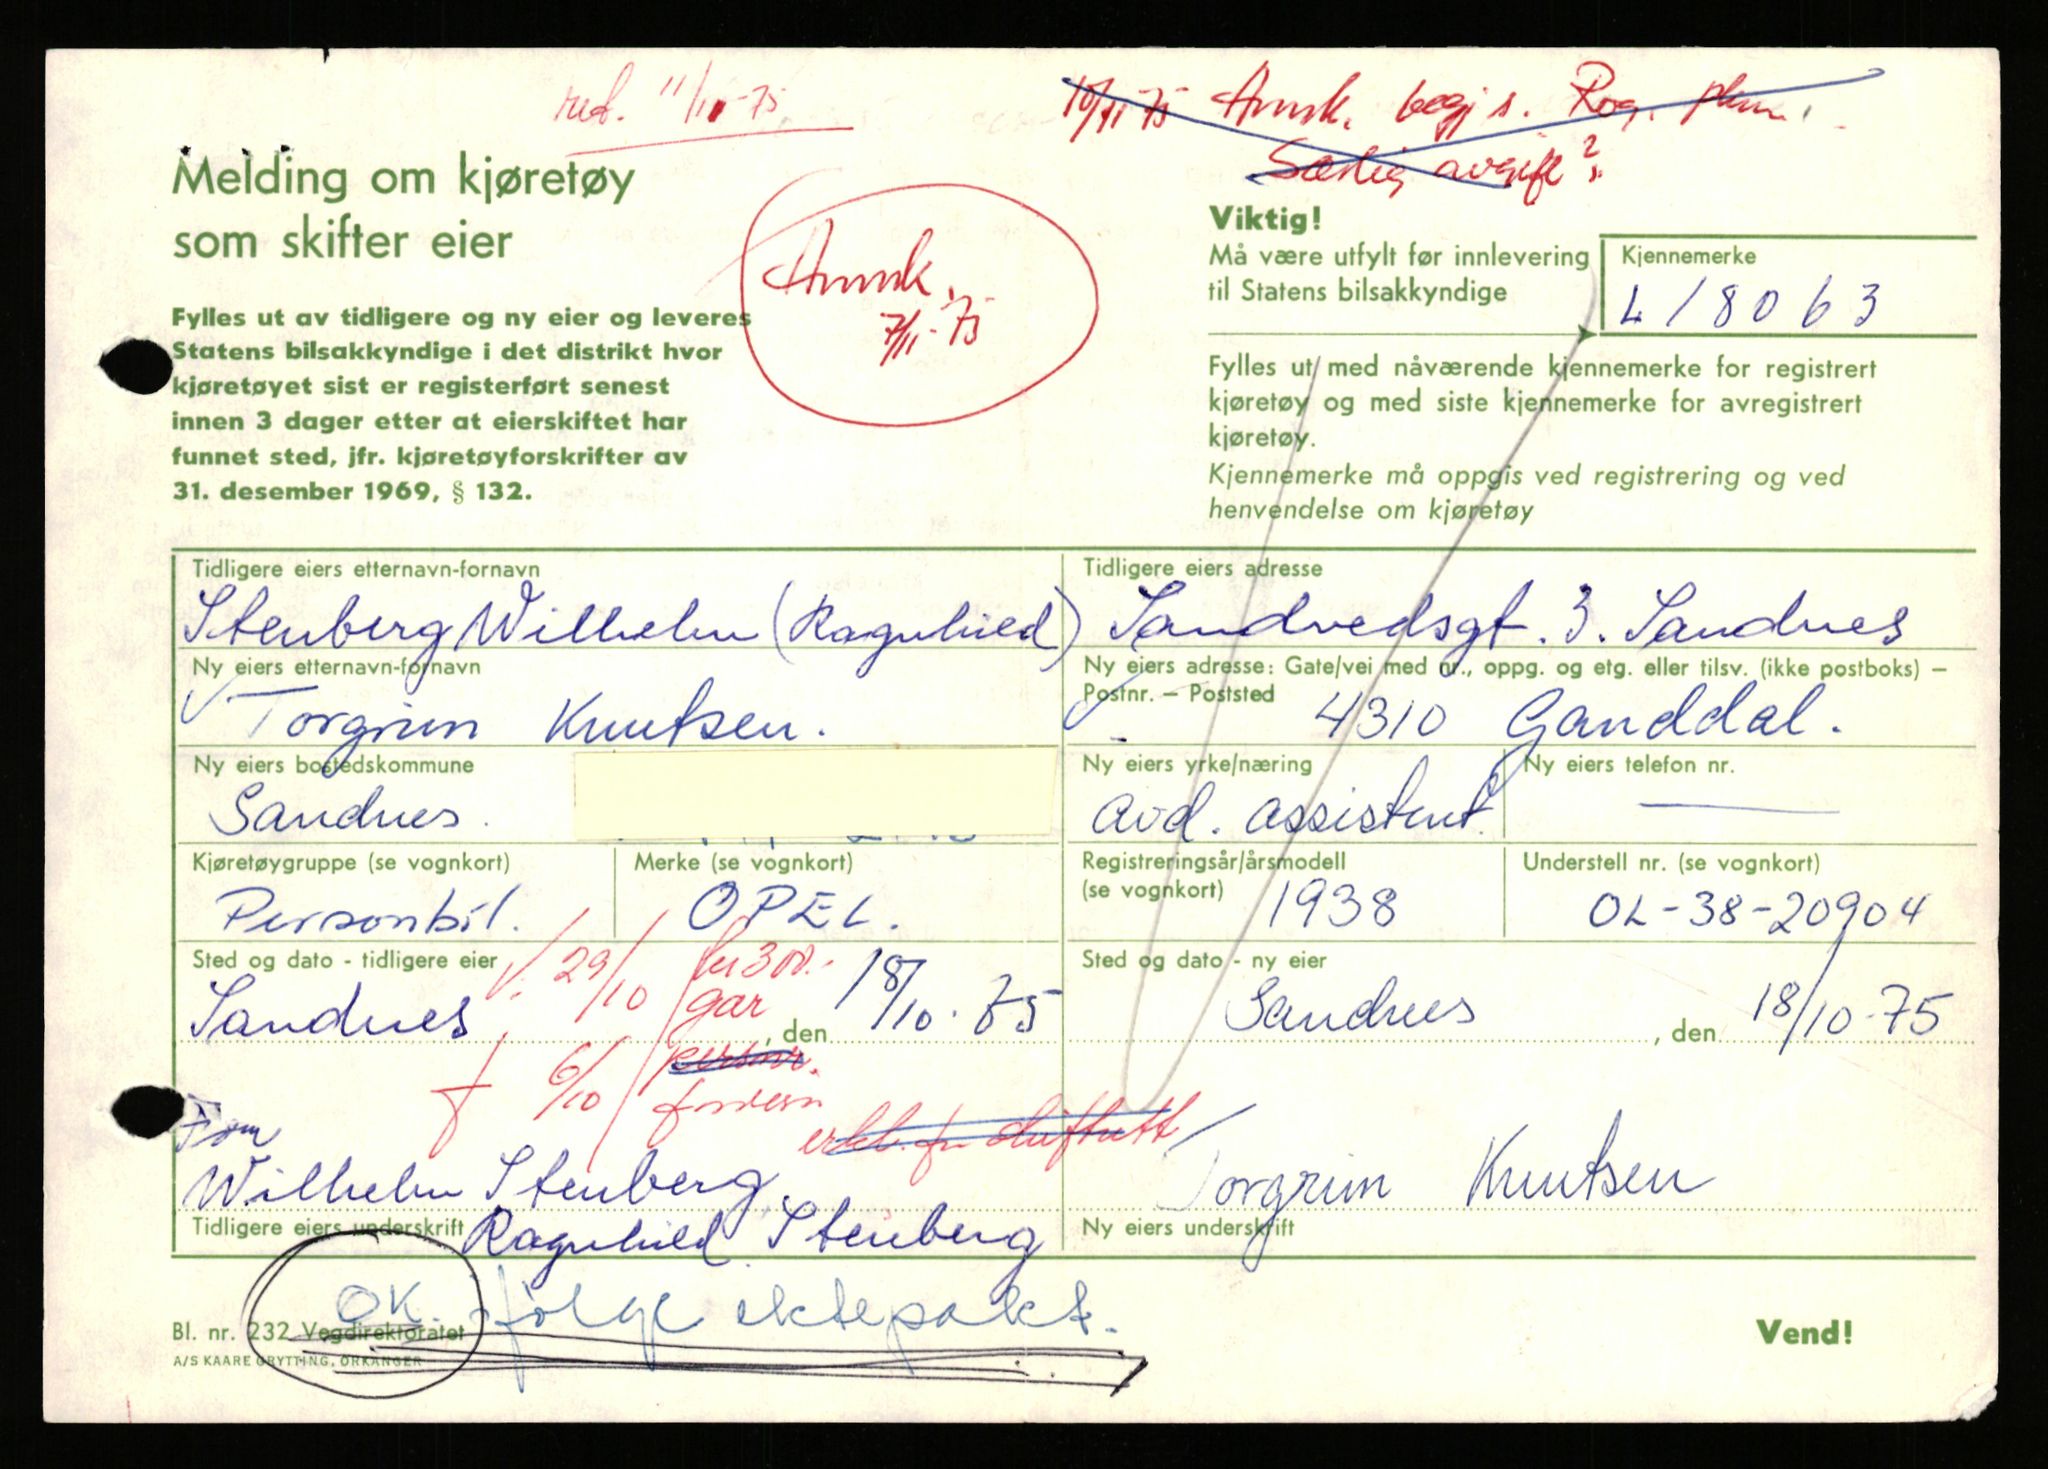 ret. 11/11-75
10/11 75 Avmsk. begj s. Rog. plan.
Særlig avgift?
Melding om kjøretøy
som skifter eier
7/11-75
Viktig!
Må være utfylt før innlevering
til Statens bilsakkyndige
Kjennemerke
L 18063
Fylles ut av tidligere og ny eier og leveres
Statens bilsakkyndige i det distrikt hvor
kjøretøyet sist er registerført senest
innen 3 dager etter at eierskiftet har
funnet sted, jfr. kjøretøyforskrifter av
31. desember 1969, § 132.
Fylles ut med nåværende kjennemerke for registrert
kjøretøy og med siste kjennemerke for avregistrert
kjøretøy.
Kjennemerke må oppgis ved registrering og ved
henvendelse om kjøretøy
Tidligere eiers etternavn-fornavn
Stenberg Wilhelm (Ragnhild)
Tidligere eiers adresse
Sandvedsgt. 3. Sandnes
Ny eiers etternavn-fornavn
Torgrim Knutsen.
Ny eiers adresse: Gate/vei med nr., oppg. og etg. eller tilsv. (ikke postboks) –
Postnr. – Poststed
4310 Ganddal.
Ny eiers bostedskommune
Sandnes.
Ny eiers yrke/næring
Avd. assistent.
Ny eiers telefon nr.
Kjøretøygruppe (se vognkort)
Personbil.
Merke (se vognkort)
OPEL.
Registreringsår/årsmodell
(se vognkort)
1938
Understell nr. (se vognkort)
OL-38-20904
Sted og dato - tidligere eier
Sandnes, den 18/10.75
29/10 kr 300.-
gar
6/10
Sted og dato - ny eier
Sandnes, den 18/10-75
Wilhelm Stenberg
Tidligere eiers underskrift
Ragnhild Stenberg
Torgrim Knutsen
Ny eiers underskrift
OK. følge ektepakt.
Bl. nr. 232 Vegdirektoratet
A/S KAARE GRYTTING, ORKANGER
Vend!